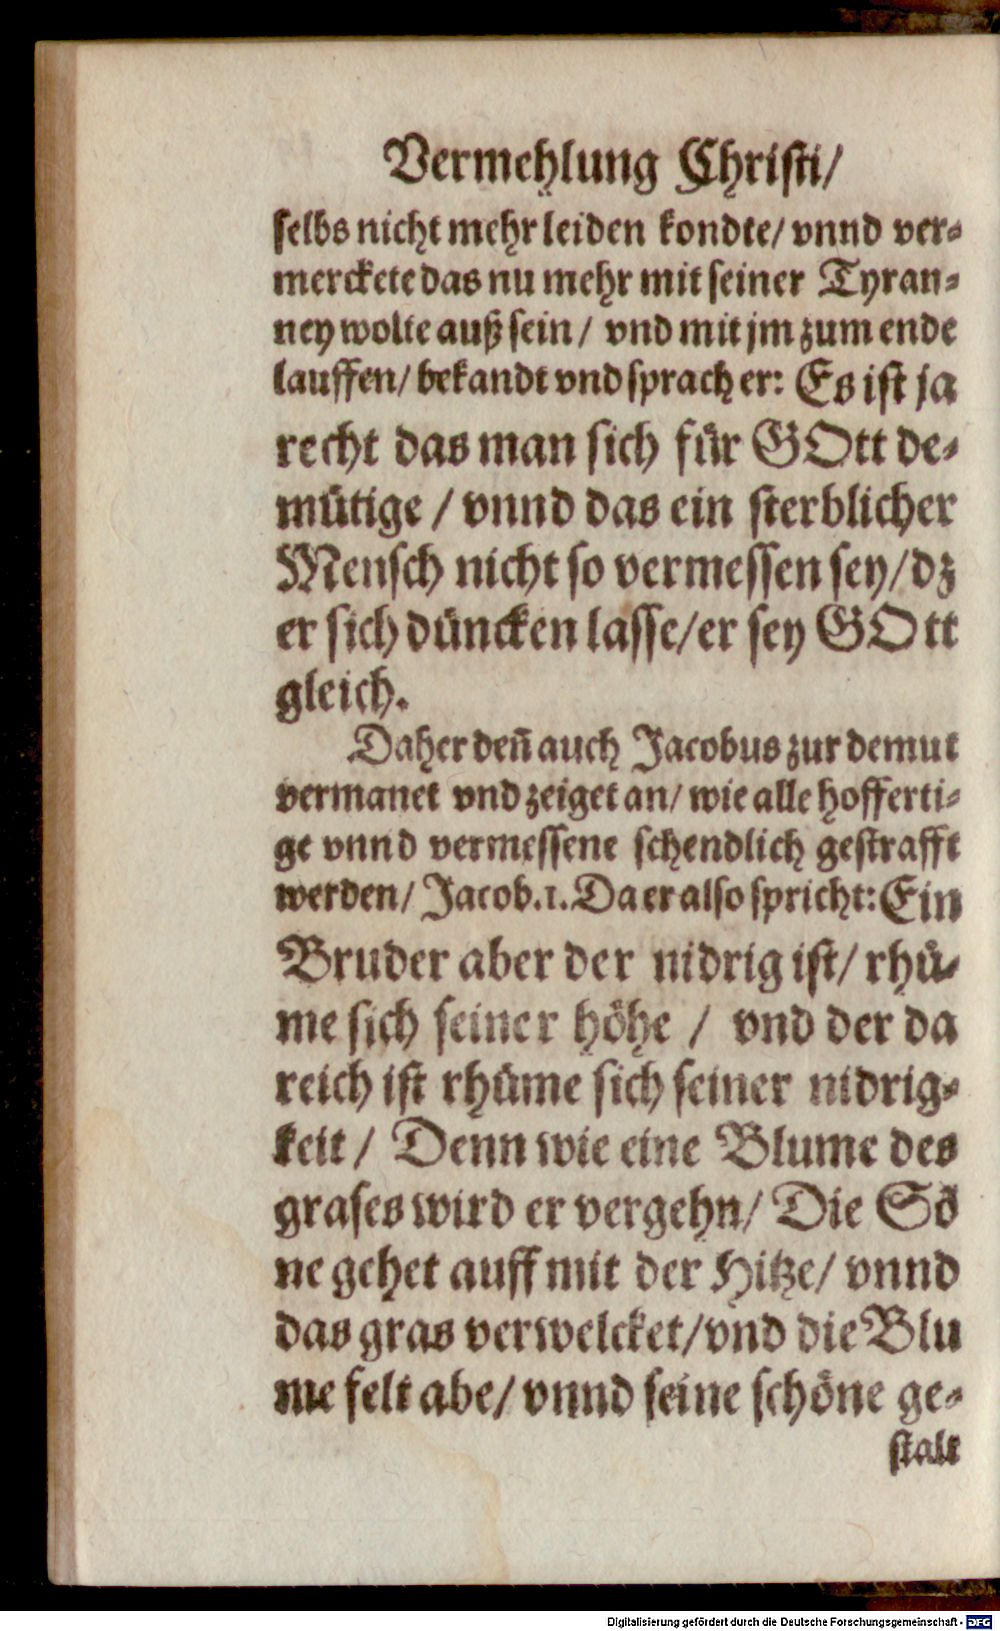 Vermehlung Christi/
selbs nicht mehr leiden kondte/ vnnd ver⸗
merckete das nu mehr mit seiner Tyran⸗
ney wolte auß sein/ vnd mit jm zum ende
lauffen/ bekandt vnd sprach er: Es ist ja
recht das man sich für GOtt de⸗
mütige / vnnd das ein sterblicher
Mensch nicht so vermessen sey/dz
er sich düncken lasse/er sey GOtt
gleich.
Daher deñ auch Jacobus zur demut
vermanet vnd zeiget an/ wie alle hofferti⸗
ge vnnd vermessene schendlich gestrafft
werden/ Jacob.1. Da er also spricht: Ein
Bruder aber der nidrig ist/ rhü⸗
me sich seiner höhe / vnd der da
reich ist rhüme sich seiner nidrig⸗
keit / Denn wie eine Blume des
grases wird er vergehn/ Die Sō
ne gehet auff mit der Hitze/ vnnd
das gras verwelcket/vnd die Blu
me felt abe/ vnnd seine schöne ge⸗
stalt
Digitalisierung gefördert durch die Deutsche Forschungsgemeinschaft - DFG